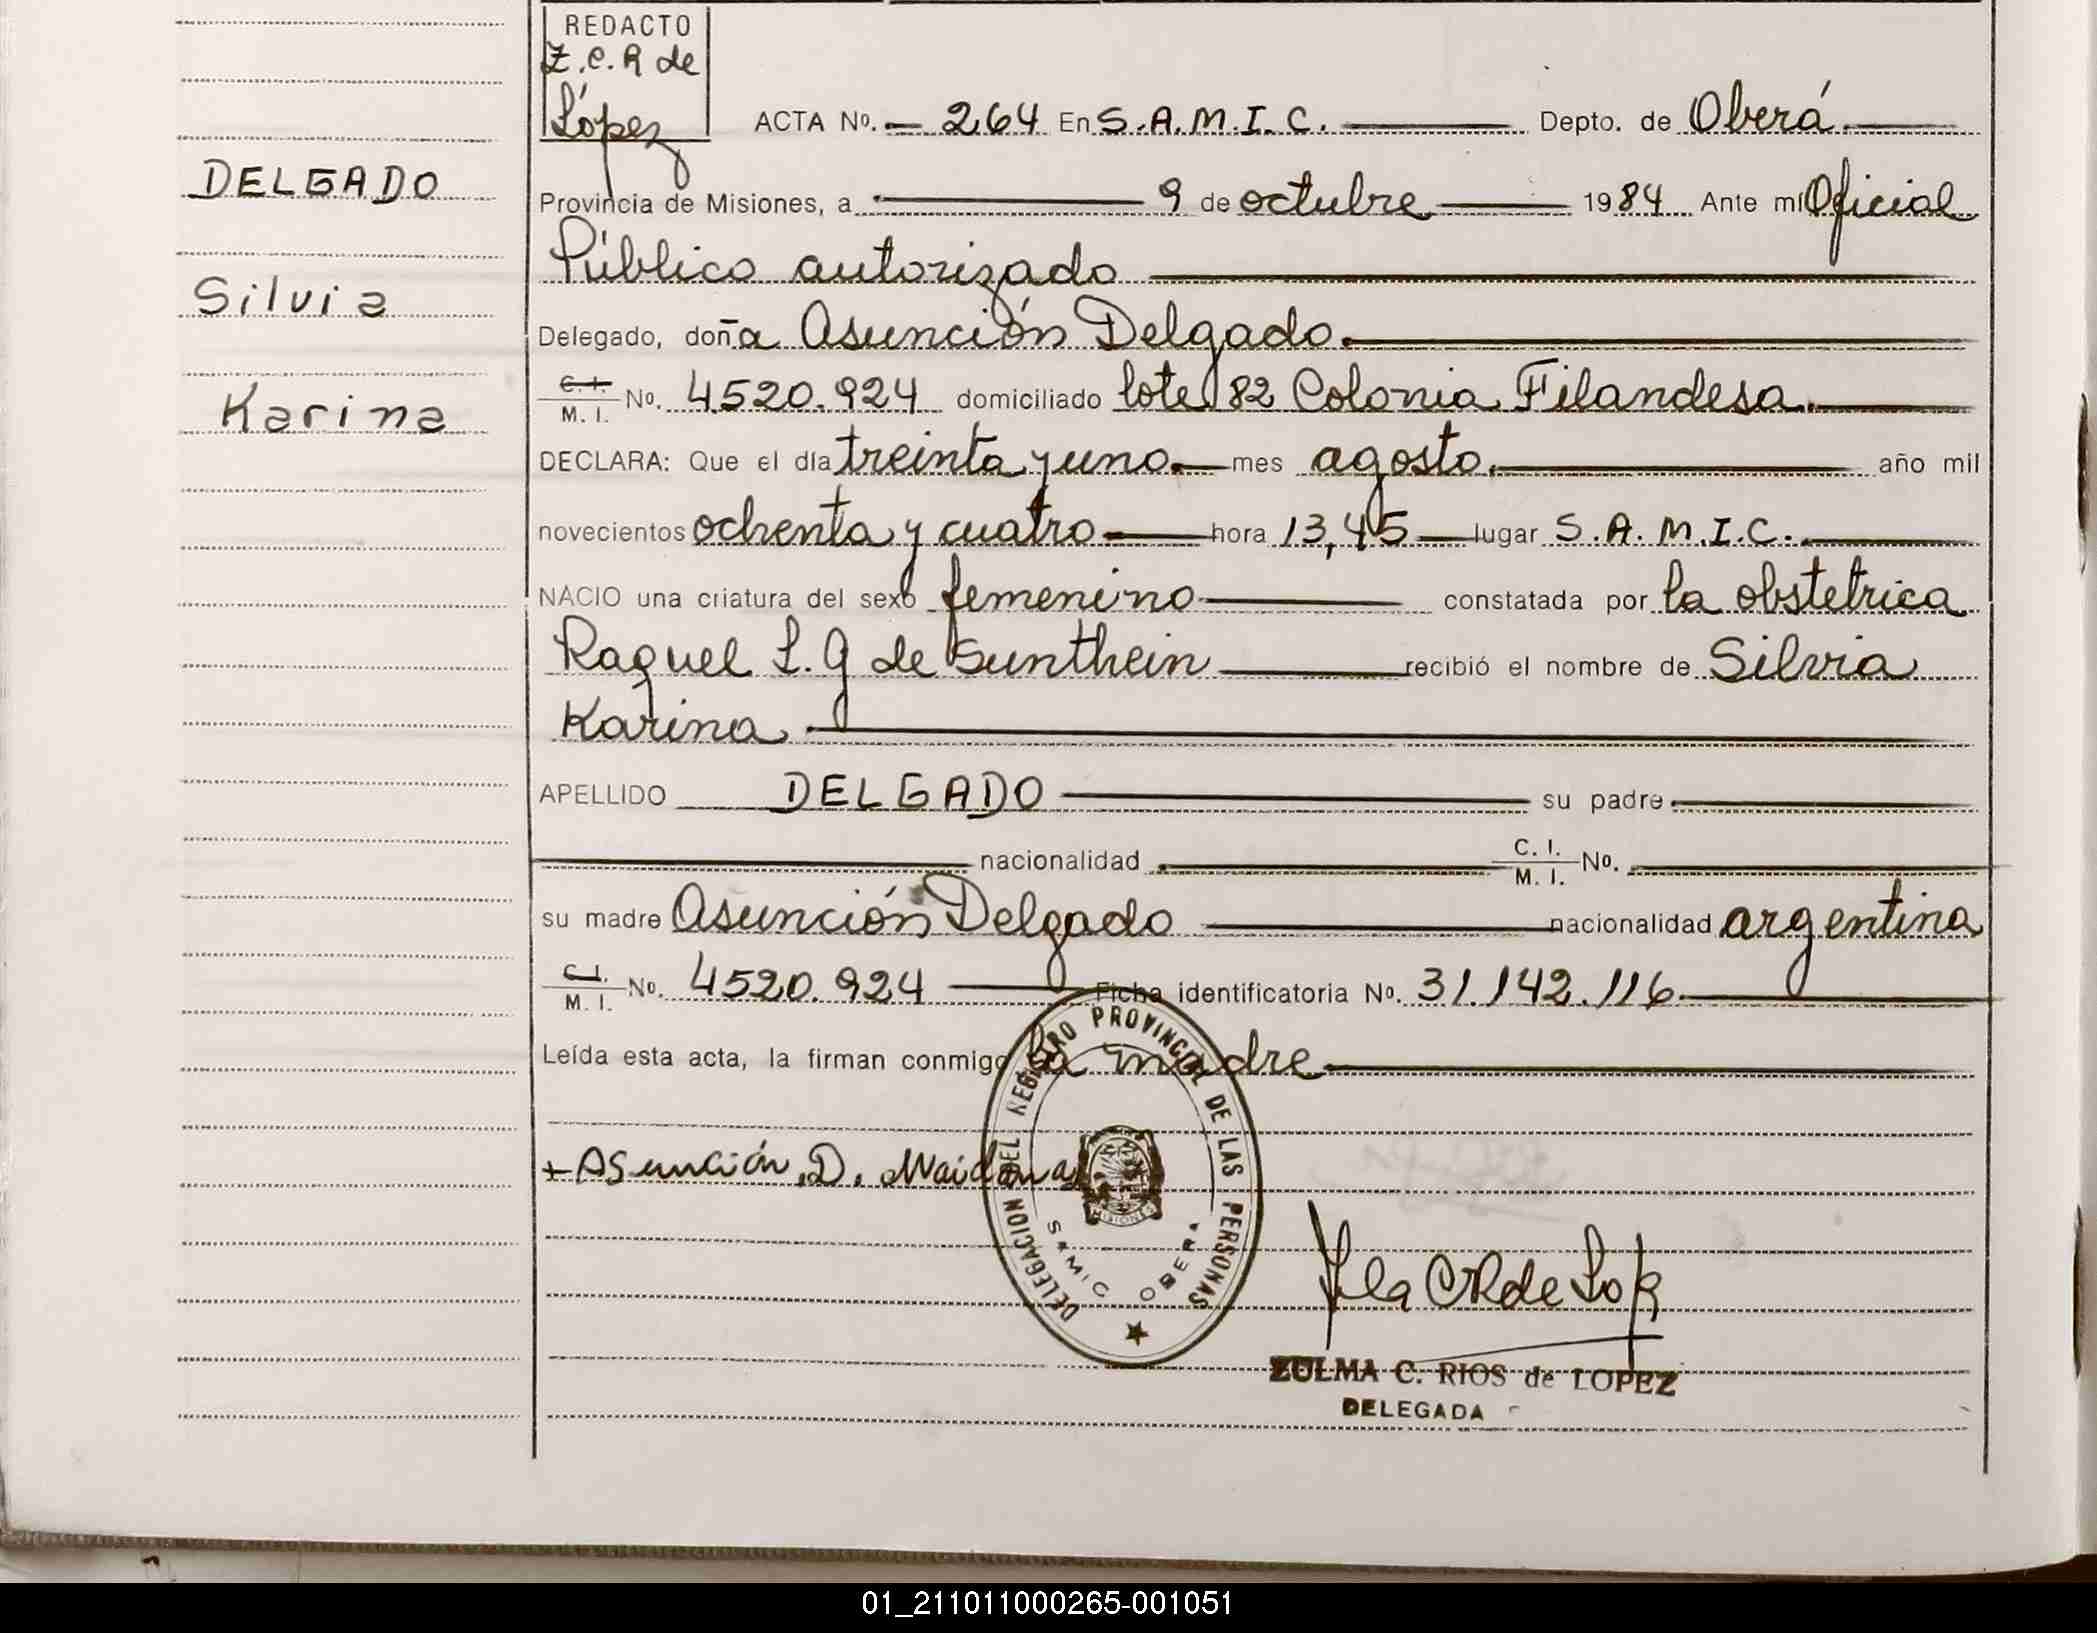 REDACTO
Z.C.R de
López
ACTA No. 264 En S.A.M.I.C. Depto. de Oberá
DELGADO
Provincia de Misiones, a 9 de octubre 1984 Ante mí Oficial
Público autorizado
Silvia
Delegado, doña Asunción Delgado.
C.I. M.I. No. 4520.924 domiciliado lote 82 Colonia Filandesa.
Karina
DECLARA: Que el día treinta y uno. mes agosto. año mil
novecientos ochenta y cuatro hora 13,45 lugar S.A.M.I.C.
NACIO una criatura del sexo femenino constatada por la obstetrica
Raquel L. G de Sunthein recibió el nombre de Silvia
Karina
APELLIDO DELGADO su padre
nacionalidad C.I. M.I. No.
su madre Asunción Delgado nacionalidad argentina
C.I. M.I. No. 4520.924 Ficha identificatoria No. 31.142.116
Leída esta acta, la firman conmigo la madre
DELEGACION DEL REGISTRO PROVINCIAL DE LAS PERSONAS
MISIONES
SAMIC OBERA
+ Asunción. D. Maidana
ZULMA C. RIOS de LOPEZ
DELEGADA
01_211011000265-001051